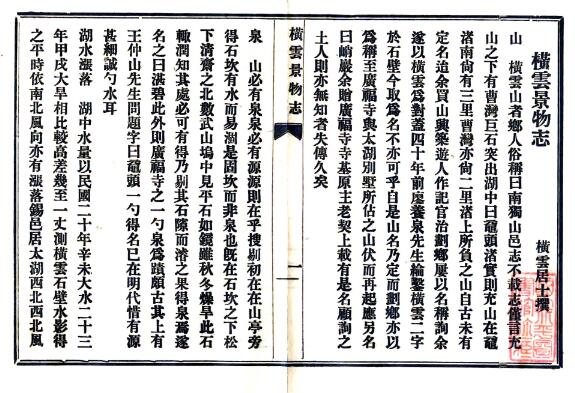 橫雲景物志
橫雲居士撰
山　橫雲山者鄉人俗稱曰南獨山邑志不載志僅言充
山之下有曹灣巨石突出湖中曰黿頭渚實則充山在黿
渚南尙有三里曹灣亦尙二里渚上所負之山自古未有
定名迨余買山興築遊人作記官治劃鄉屢以名稱詢余
遂以橫雲爲對蓋四十年前廖養泉先生綸鑿橫雲二字
於石壁今取爲名不亦可乎自是山名乃定而劃鄉亦以
爲稱至廣福寺與太湖別墅所佔之山伏而再起應另名
曰峭巖余贈廣福寺寺基原主老契上載有是名顧詢之
土人則亦無知者失傳久矣
橫雲景物志
一
泉　山必有泉泉必有源源則在乎搜剔初在在山亭旁
得石坎有水而易涸是固坎而非泉也旣在石坎之下松
下淸齋之北數武山塢中見平石如鏡雖秋冬燥旱此石
輒潤知其處必可有得乃剔其石隙而濬之果得泉焉遂
名之曰湛碧此外則廣福寺之一勺泉爲蹟頗古其上有
王仲山先生問題字曰黿頭一勺得名已在明代惜有源
甚細誠勺水耳
湖水漲落　湖中水量以民國二十年辛未大水二十三
年甲戌大旱相比較高差幾至一丈測橫雲石壁水影得
之平時依南北風向亦有漲落錫邑居太湖西北西北風